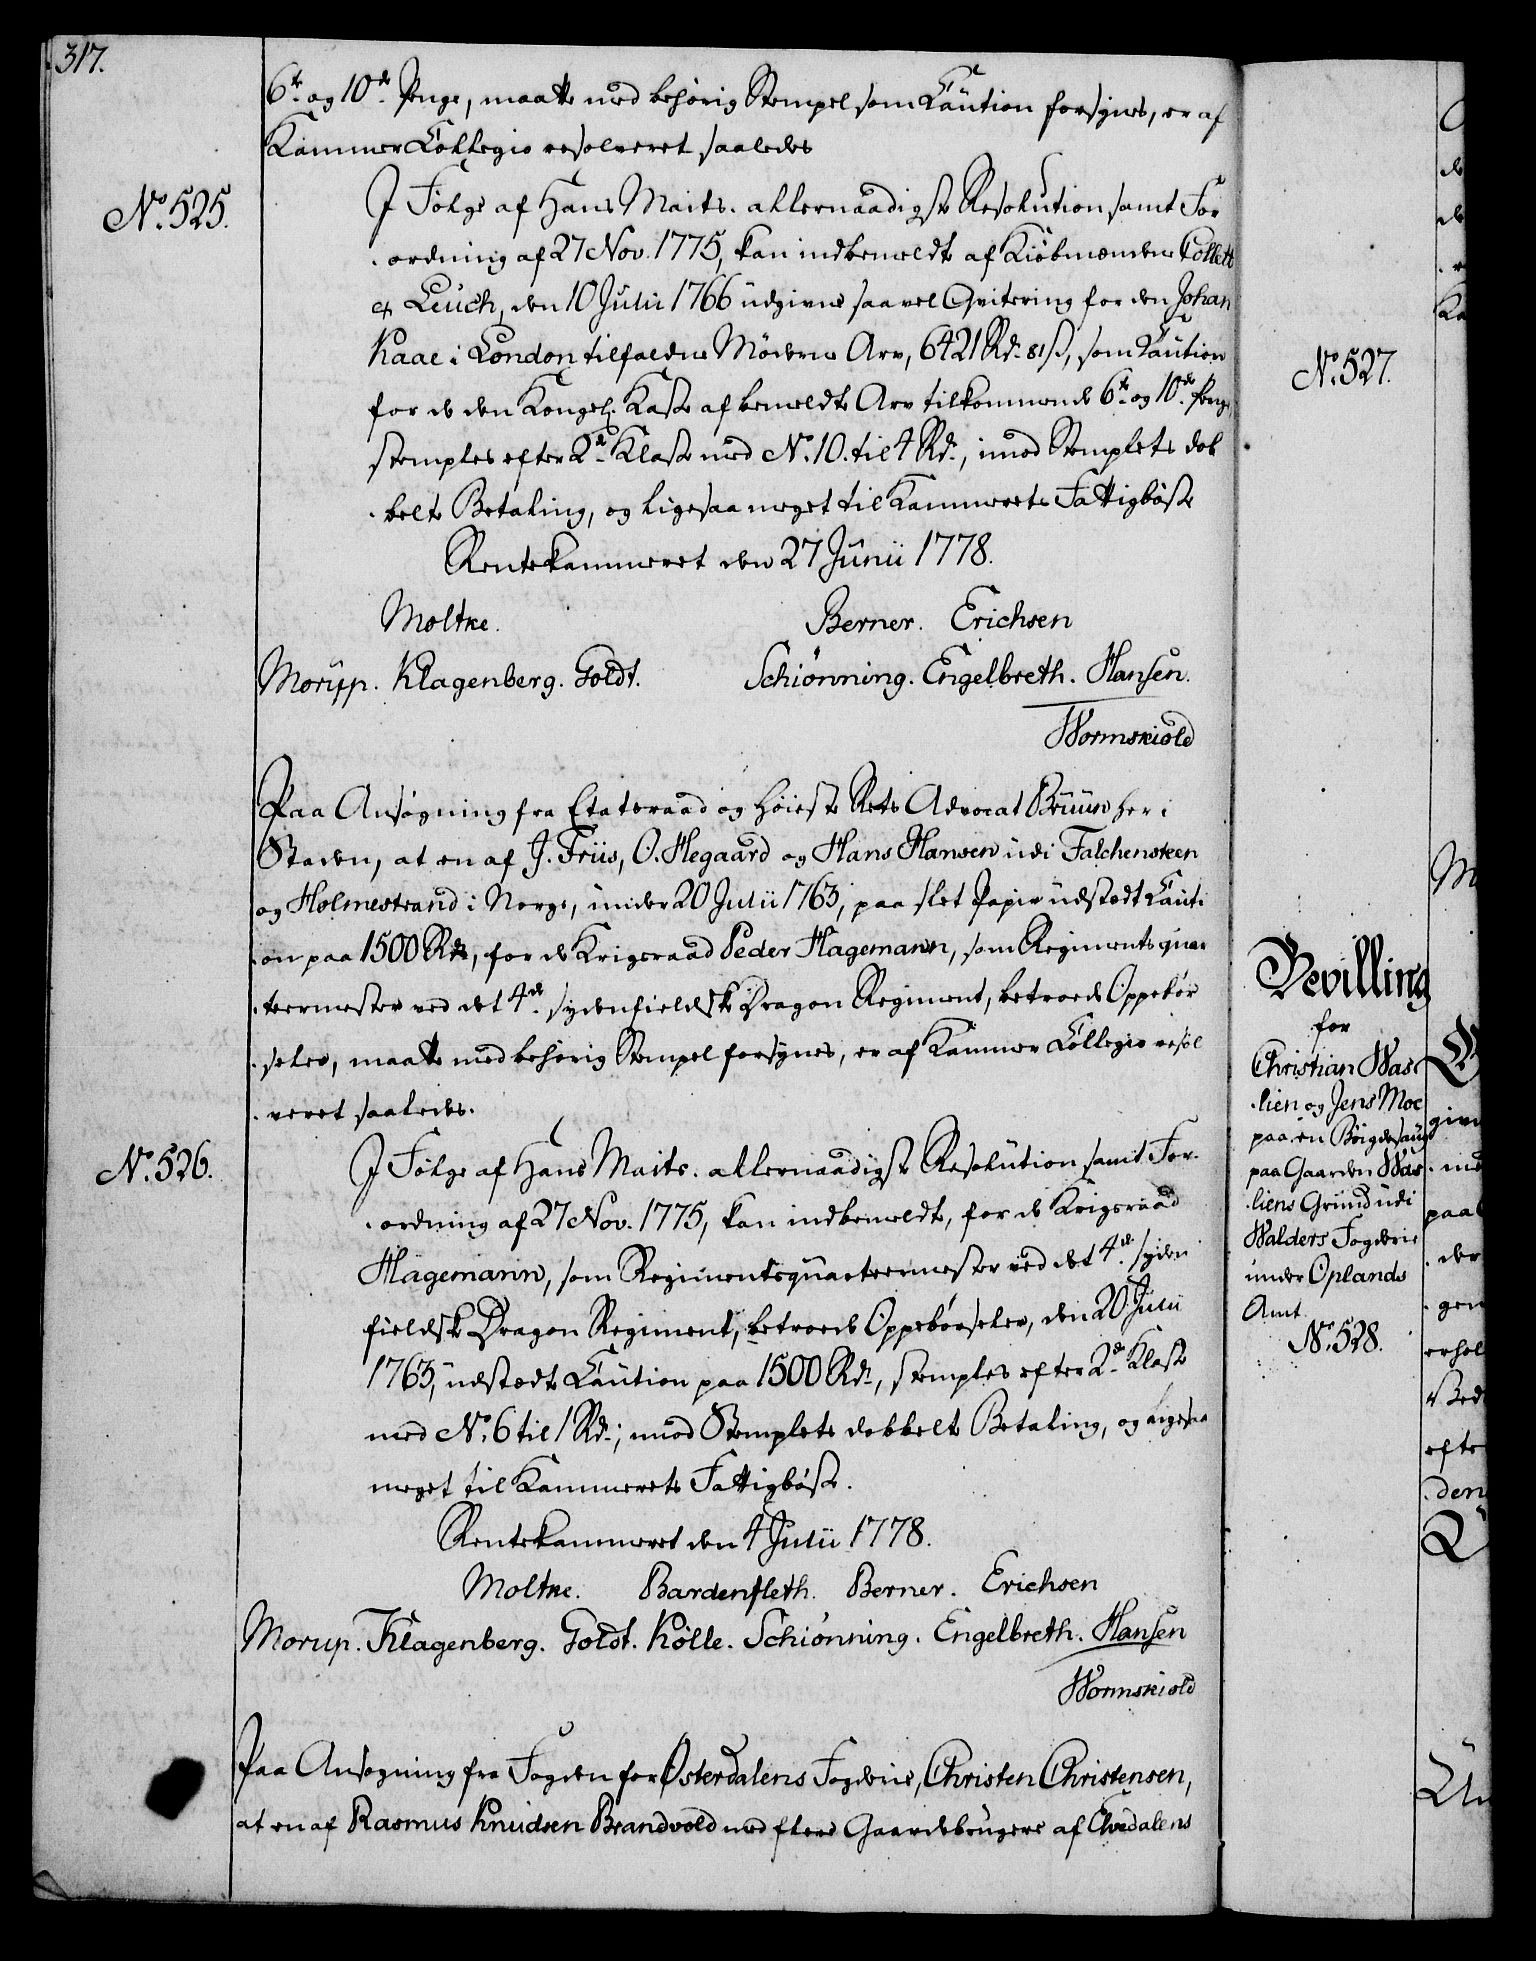 317.
6te og 10de Penge, maatte med behørig Stempel som Caution forsynes, er af
Kammer Collegio resolveret saaledes
No. 525.
I Følge af Hans Maits. allernaadigste Resolution samt For
. ordning af 27 Nov. 1775, kan indbemeldte af Kiøbmændene Collett
& Leuch, den 10 Julii 1766 udgivne saavel Qvitering for den Johan
Kaae i London tilfaldne Møderne Arv, 6421 Rd. 81 ß, som Caution
for de den Kongel. Kasse af bemeldte Arv tilkommende 6te og 10de Penge,
stemples efter 2de Klasse med No. 10. til 4 Rd., imod Stemplets dob
. belte Betaling, og ligesaa meget til Kammerets Fattigbøsse
Rentekammeret den 27 Junii 1778.
Moltke. Berner. Erichsen
Morupp. Klagenberg. Goldt. Schiønning. Engelbreth. Hansen.
Wormskiold
Paa Ansøgning fra Etatsraad og Høieste Rets Advocat Bruun her i
Staden, at en af J. Friis, O. Hegaard og Hans Hansen udi Falchensteen
og Holmestrand i Norge, under 20 Julii 1763, paa slet Papir udstædt Cauti
. on paa 1500 Rdr, for de Krigsraad Peder Hagemann, som Regimentsquar
. teermester ved det 4de sydenfieldske Dragon Regiment, betroede Oppebør
. seler, maatte med behørig Stempel forsynes, er af Kammer Collegio resol
. veret saaledes.
No. 526.
I Følge af Hans Maits. allernaadigste Resolution samt For-
. ordning af 27 Nov. 1775, kan indbemeldte, for de Krigsraad
Hagemann, som Regimentsquarteermester ved det 4de syden
fieldske Dragon Regiment, betroede Oppebørseler, den 20 Julii
1763, udstædte Caution paa 1500 Rd., stemples efter 2de Klasse
med No. 6 til 1 Rd.; imod Stemplets dobbelte Betaling, og ligesaa
meget til Kammerets Fattigbøsse.
Rentekammeret den 4 Julii 1778.
Moltke. Bardenfleth. Berner. Erichsen
Morup. Klagenberg. Goldt. Kölle. Schiønning. Engelbreth. Hansen
Wormskiold
Paa Ansøgning fra Fogden for Østerdalens Fogderie, Christen Christensen,
at en af Rasmus Knudsen Brandvold med flere Gaardebrugere af Elvedalens
No. 527.
Bevilling
for
Christian Was
. lien og Jens Moe
paa en Bøigdesaug
paa Gaarden Was
. liens Grund udi
Walders Fogderie
under Oplands
Amt.
No. 528.